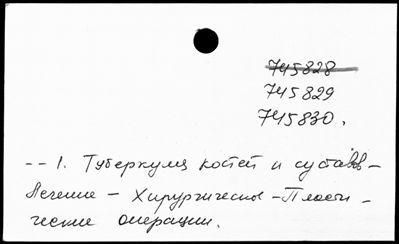 745828
745829
745830.
-- 1. Туберкулез костей и суставов -
Лечение - Хирургическое - Пласти -
ческие операции.